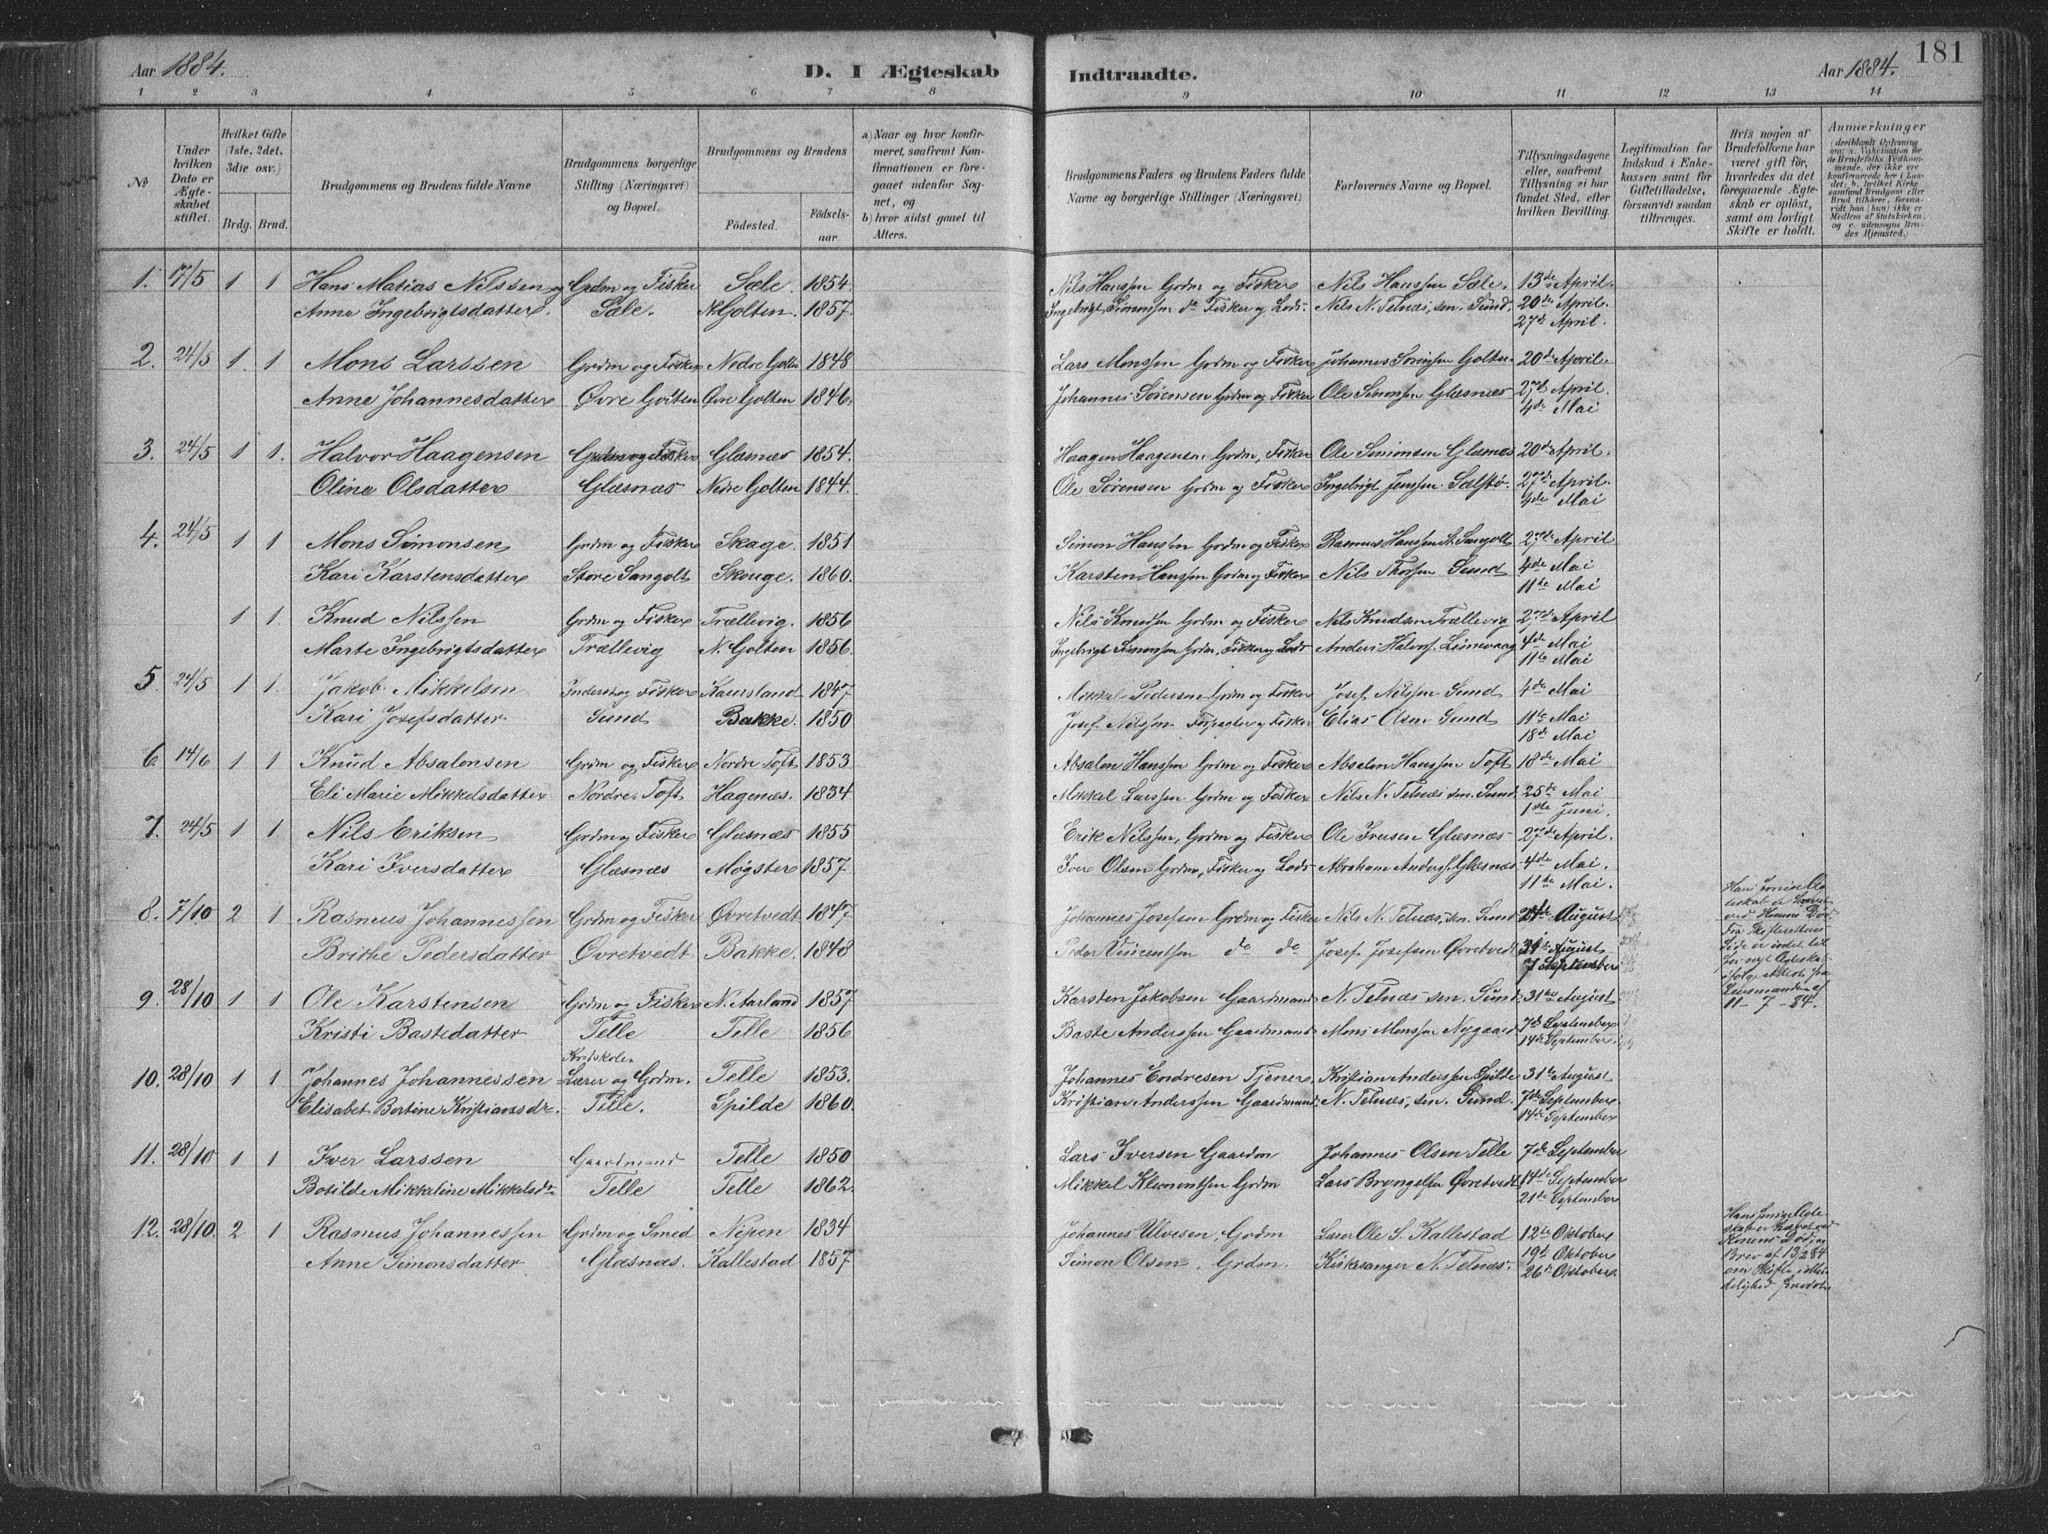 Aar 1884.
D. I Ægteskab
Indtraadte.
Aar 1884.
181
1 2 3 4 5 6 7 8 9 10 11 12 13 14
№
Under hvilken Dato er Ægteskabet stiftet.
Hvilket Gifte (1ste, 2det, 3die osv.)
Brdg. Brud.
Brudgommens og Brudens fulde Navne
Brudgommens borgerlige Stilling (Næringsvei) og Bopæl.
Brudgommens og Brudens
Fødested.
Fødselsaar.
a) Naar og hvor konfirmeret, saafremt Konfirmationen er foregaaet udenfor Sognet, og
b) hvor sidst gaaet til Alters.
Brudgommens Faders og Brudens Faders fulde Navne og borgerlige Stillinger (Næringsvei)
Forlovernes Navne og Bopæl.
Tillysningsdagene eller, saafremt Tillysning ei har fundet Sted, efter hvilken Bevilling.
Legitimation for Indskud i Enkekassen samt for Giftetilladelse, forsaavidt saadan tiltrænges.
Hvis nogen af Brudefolkene har været gift før, hvorledes da det foregaaende Ægteskab er opløst, samt om lovligt Skifte er holdt.
Anmærkninger
1. 7/5 1 1 Hans Matias Nilssen og Grdm og Fisker Sæle 1854. Nils Hanssen Grdm og Fisker Nils Hanssen Sæle. 13de April.
Anna Ingebrigtsdatter. Sæle. N. Golten. 1857. Ingebrigt Simonssen do Fisker og Lods. Nils N. Telnæs, sen. Sund. 20de April.
27de April.
2. 24/5 1. 1 Mons Larssen Grdm og Fisker Nedre Golten 1848 Lars Monssen Grdm og Fisker Johannes Sørensen Golten 20de April.
Anne Johannesdatter Øvre Golten Øvre Golten 1846. Johannes Sørensen Grdm og Fisker Ole Simonsen Glæsnæs 27de April.
4de Mai
3. 24/5 1 1. Halvor Haagensen Grdm og Fisker Glæsnæs 1854. Haagen Haagensen Grdm, Fisker Ole Simonsen Glæsnæs 20de April.
Oline Olsdatter Glæsnæs Nedre Golten 1844. Ole Sørensen Grdm og Fisker Ingebrigt Jenssen Sælstø. 27de April.
4de Mai
4. 24/5 1 1 Mons Simonsen Grdm og Fisker Skage. 1851 Simon Hanssen Grdm og Fisker Rasmus Hanssen St. Sangolt 27de April
Kari Karstensdatter Store Sangolt Skouge. 1860. Karsten Hanssen Grdm og Fisker Nils Thorsen Sund 4de Mai
11te Mai
1 1. Knud Nilssen Grdm og Fisker Trællevig. 1856 Nils Knudsen Grdm og Fisker Nils Knudsen Trællevig 27de April
Marte Ingebrigtsdatter Trællevig N. Golten 1856. Ingebrigt Simonssen Grdm, Fisker og Lods Anders Halvors. Limevaag 4de Mai
11te Mai
5. 24/5 1 1. Jakob Mikkelsen Inderst og Fisker Kaursland 1847 Mikkel Pedersen Grdm og Fisker Josef Nilssen Sund 4de Mai
Kari Josefsdatter Sund Bakke. 1850 Josef Nilssen Forpagter og Fisker Elias Olsen Sund 11te Mai
18de Mai
6. 14/6 1 1 Knud Absalonsen Grdm og Fisker Nordre Toft 1853 Absalon Hanssen Grdm og Fisker Absalon Hanssen Toft 18de Mai
Eli Marie Mikkelsdatter Nordre Toft Hagenæs. 1834 Mikkel Larssen Grdm og Fisker Nils N. Telnæs sen. Sund. 25te Mai
1ste Juni.
7. 24/5 1 1. Nils Eriksen Grdm og Fisker Glæsnæs 1855 Erik Nilssen, Grdm og Fisker Ole Iversen Glæsnæs 27de April.
Kari Iversdatter Glæsnæs Møgster 1857. Iver Olsen Grdm, Fisker og Lods Abraham Anders. Glæsnæs 4de Mai.
11te Mai.
8. 7/10 2 1 Rasmus Johannessen Grdm og Fisker Øvretvedt 1847 Johannes Josefsen Grdm og Fisker Nils N. Telnæs, sen. Sund 24de August
Brithe Pedersdatter Øvretvedt Bakke. 1848 Peder Vincentsen do do Josef Josefsen Øvretvedt 31te August
7 September
9. 28/10 1 1 Ole Karstensen Grdm og Fisker N. Aarland 1857 Karsten Jakobsen Gaardmand N. Telnæs sen. Sund 31te August
Kristi Bastedatter Telle Telle 1856 Baste Anderssen Gaardmand Mons Monssen Nygaard 7de September
14de September
10. 28/10 1 1 Johannes Johannessen Kredsskole Lærer og Grdm. Telle 1853. Johannes Endresen Tjener Kristian Anderssen Spilde 31te August
Elisabet Bertine Kristiansdr. Telle. Spilde 1860. Kristian Anderssen Gaardmand N. Telnæs, sen. Sund. 7de September
14de September
11. 28/10 1 1 Iver Larssen Gaardmand Telle 1850 Lars Iversen Gaardm Johannes Olsen Telle 7de September
Botilde Mikkeline Mikkelsdr. Telle Telle 1862. Mikkel Klementsen Grdm Lars Bryngelsen Øvretvedt 14de September
21de September
12. 28/10. 2 1 Rasmus Johannessen Grdm og Smed Nepen 1834 Johannes Ulvesen, Grdm Lærer Ole S. Kallestad 12te Oktober
Anne Simonsdatter Glæsnæs. Kallestad 1857 Simon Olsen, Grdm. Kirkesanger N. Telnæs. 19de Oktober
26de Oktober.
11-7-84.
Brev af 13/2 84